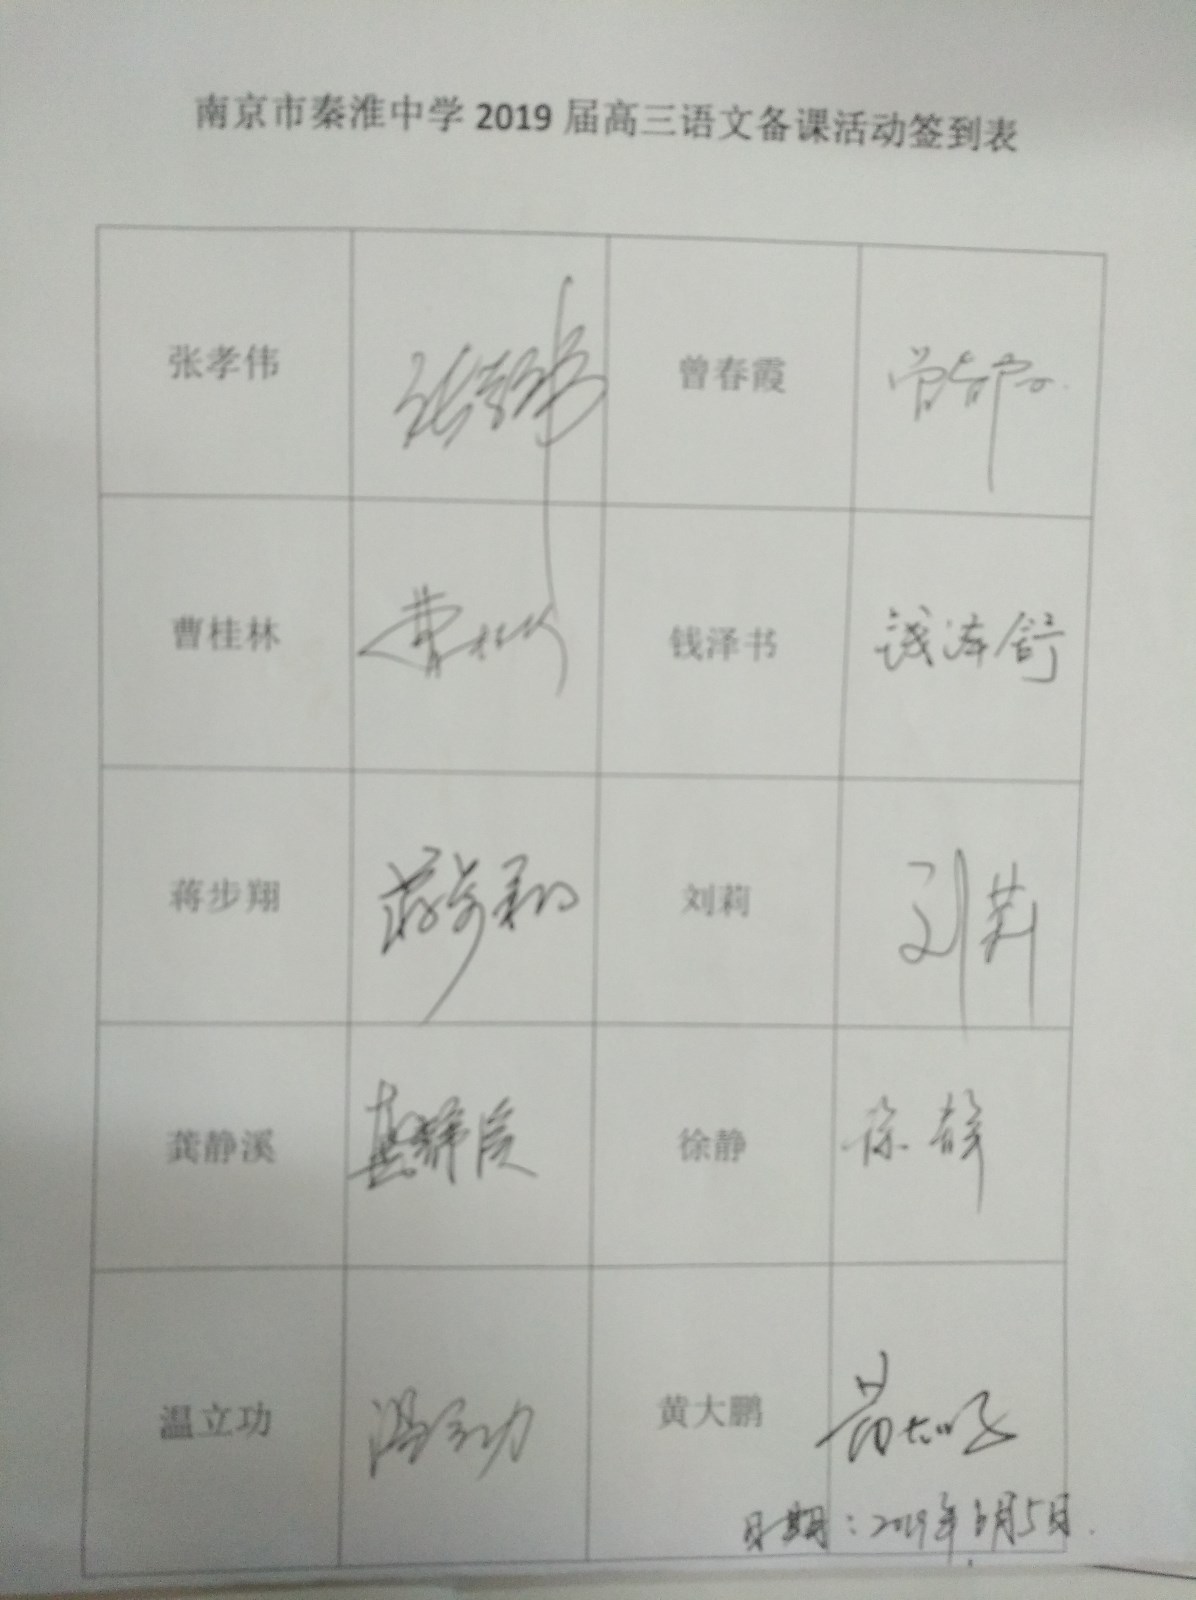 南京市秦淮中学 2019 届高三语文备课活动签到表
张孝伟 张孝伟 曾春霞 曾春霞
曹桂林 曹桂林 钱泽书 钱泽舒
蒋步翔 蒋步翔 刘莉 刘莉
龚静溪 龚静溪 徐静 徐静
温立功 温立功 黄大鹏 黄大鹏
日期：2019年6月5日.